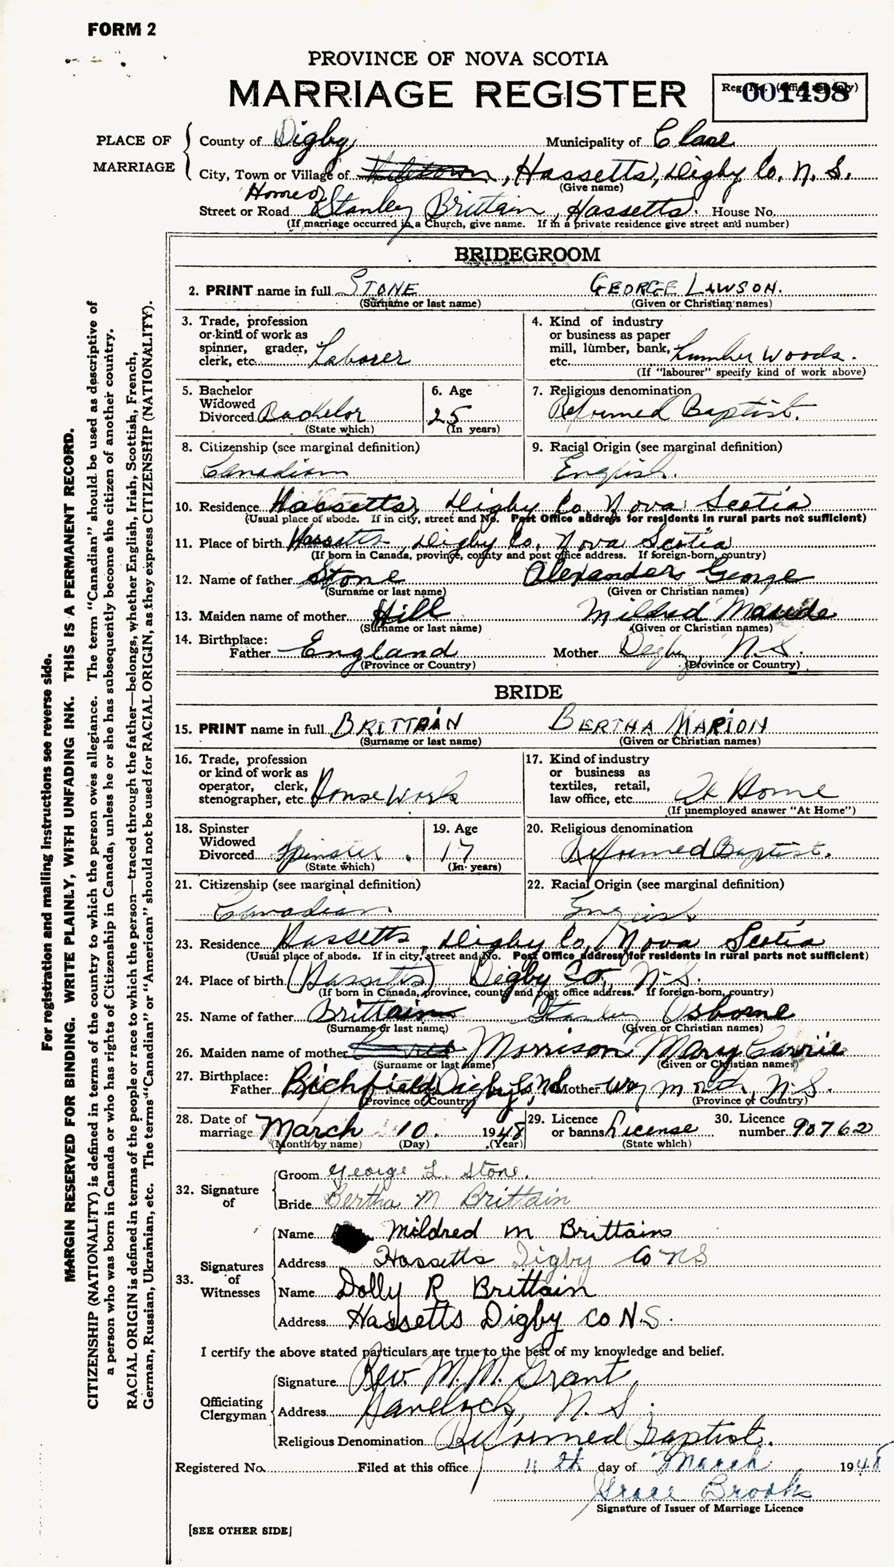 FORM 2
PROVINCE OF NOVA SCOTIA
MARRIAGE REGISTER
Reg. No. (Office use only) 001498
PLACE OF MARRIAGE
County of Digby Municipality of Clare
City, Town or Village of , Hassetts, Digby Co. N. S.
(Give name)
Home of
Street or Road Stanley Brittain, Hassetts. House No.
(If marriage occurred in a Church, give name. If in a private residence give street and number)
BRIDEGROOM
2. PRINT name in full STONE GEORGE LAWSON.
(Surname or last name) (Given or Christian names)
3. Trade, profession or kind of work as spinner, grader, clerk, etc. Laborer
4. Kind of industry or business as paper mill, lumber, bank, etc. Lumber Woods.
(If "labourer" specify kind of work above)
5. Bachelor Widowed Divorced Bachelor
(State which)
6. Age 25
(In years)
7. Religious denomination
Reformed Baptist.
8. Citizenship (see marginal definition)
Canadian
9. Racial Origin (see marginal definition)
English.
10. Residence Hassetts, Digby Co. Nova Scotia
(Usual place of abode. If in city, street and No. Post Office address for residents in rural parts not sufficient)
11. Place of birth Hassetts, Digby Co. Nova Scotia
(If born in Canada, province, county and post office address. If foreign-born, country)
12. Name of father Stone Alexander George
(Surname or last name) (Given or Christian names)
13. Maiden name of mother Hill Mildred Maude
(Surname or last name) (Given or Christian names)
14. Birthplace:
Father England Mother Digby, N.S.
(Province or Country) (Province or Country)
BRIDE
15. PRINT name in full BRITTAIN BERTHA MARION
(Surname or last name) (Given or Christian names)
16. Trade, profession or kind of work as operator, clerk, stenographer, etc. House Work
17. Kind of industry or business as textiles, retail, law office, etc. At Home
(If unemployed answer "At Home")
18. Spinster Widowed Divorced Spinster.
(State which)
19. Age 17
(In years)
20. Religious denomination
Reformed Baptist.
21. Citizenship (see marginal definition)
Canadian
22. Racial Origin (see marginal definition)
English
23. Residence Hassetts, Digby Co, Nova Scotia
(Usual place of abode. If in city, street and No. Post Office address for residents in rural parts not sufficient)
24. Place of birth (Hassetts) Digby Co, N-S.
(If born in Canada, province, county and post office address. If foreign-born, country)
25. Name of father Brittain Stanley Osborne
(Surname or last name) (Given or Christian names)
26. Maiden name of mother Morrison Mary Carrie
(Surname or last name) (Given or Christian names)
27. Birthplace:
Father Richfield Digby Co, NS Mother Weymouth, N.S.
(Province or Country) (Province or Country)
28. Date of marriage March 10. 1948
(Month by name) (Day) (Year)
29. Licence or banns License
(State which)
30. Licence number 90762
32. Signature of
Groom George L. Stone.
Bride Bertha M Brittain
33. Signatures of Witnesses
Name Mildred M Brittain
Address Hassetts Digby Co NS
Name Dolly R Brittain
Address Hassetts Digby Co N.S.
I certify the above stated particulars are true to the best of my knowledge and belief.
Officiating Clergyman
Signature Rev M. M. Grant
Address Havelock, N. S.
Religious Denomination Reformed Baptist.
Registered No. Filed at this office 11th day of March 1948
Grace Brooks
Signature of Issuer of Marriage Licence
[SEE OTHER SIDE]
For registration and mailing instructions see reverse side.
MARGIN RESERVED FOR BINDING. WRITE PLAINLY, WITH UNFADING INK. THIS IS A PERMANENT RECORD.
CITIZENSHIP (NATIONALITY) is defined in terms of the country to which the person owes allegiance. The term "Canadian" should be used as descriptive of
a person who was born in Canada or who has rights of Citizenship in Canada, unless he or she has subsequently become the citizen of another country.
RACIAL ORIGIN is defined in terms of the people or race to which the person—traced through the father—belongs, whether English, Irish, Scottish, French,
German, Russian, Ukrainian, etc. The terms "Canadian" or "American" should not be used for RACIAL ORIGIN, as they express CITIZENSHIP (NATIONALITY).